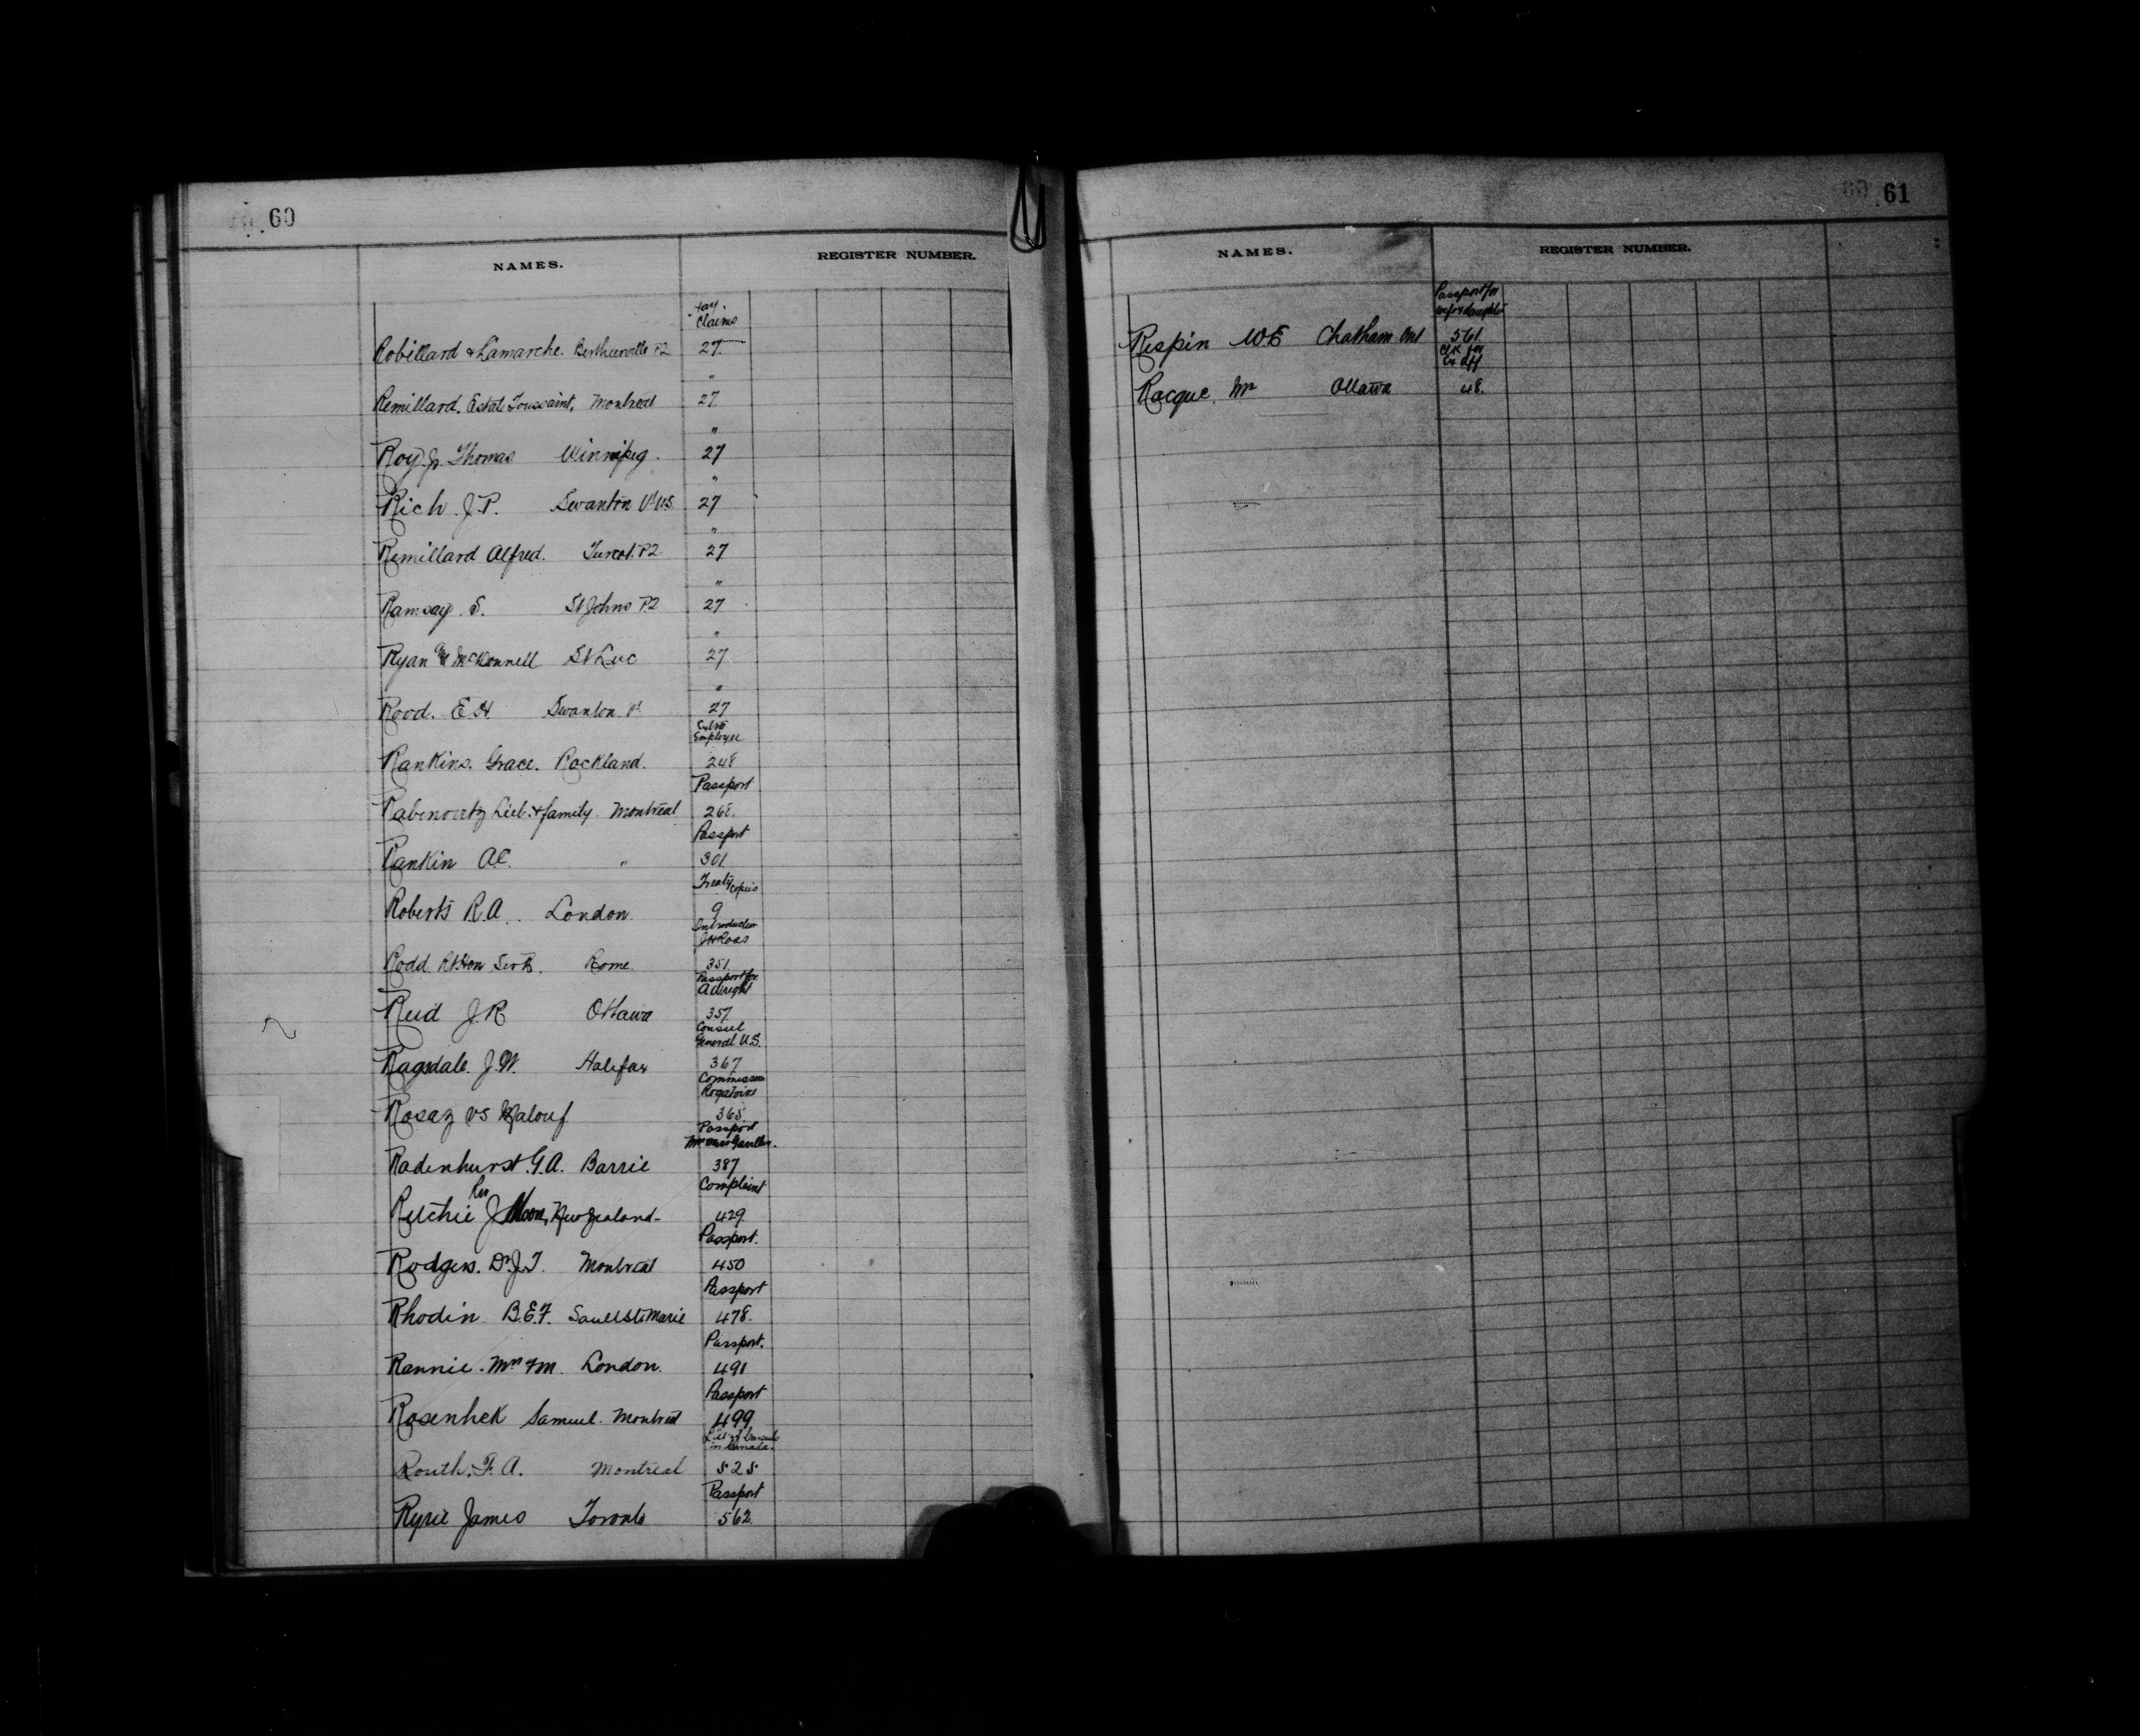 60
NAMES. REGISTER NUMBER.
Hay Claims
Robillard & Lamarche. Berthierville P2 27
"
Remillard, Estate Toussaint, Montreal 27
"
Roy Jr. Thomas Winnipeg. 27
"
Rich J.P. Swanton Vt US. 27
"
Remillard Alfred. Turcot. P2 27
"
Ramsay. S. St Johns P2 27
"
Ryan & McKonnell St Luc 27
"
Rood. E.H. Swanton Vt. 27
Employee
Rankins. Grace. Rockland. 248
Passport
Rabinovitz Lieb. & family. Montreal 268.
Passport
Rankin A.C. " 301
Treaty copies
Roberts R.A. London. 9
Introduction
J H Ross
Rodd. Rt Hon Sir R. Rome. 351.
Passport for
Allwright
Reid J.R Ottawa 357.
Consul
General U.S.
Ragsdale. J.W. Halifax 367
Commission
Rogatoire
Rosaz vs Malouf 365.
Passport
Radenhurst. G.A. Barrie 387
Complaint
Rev
Ritchie J Moore, New Zealand- 429.
Passport.
Rodgers. Dr. J.T. Montreal 450
Passport
Rhodin B.E.F. Sault Ste Marie 478.
Passport.
Rannie. Mrs F M. London. 491
Passport
Rosenhek Samuel. Montreal 499
List of Consuls
in Canada.
Routh. F. A. Montreal 525
Passport
Ryrie James Toronto 562.
61
NAMES. REGISTER NUMBER.
Passport for
wife & daughter
Rispin W E Chatham Ont 561.
Clk for
Ex Aff
Racque. Mr Ottawa 48.